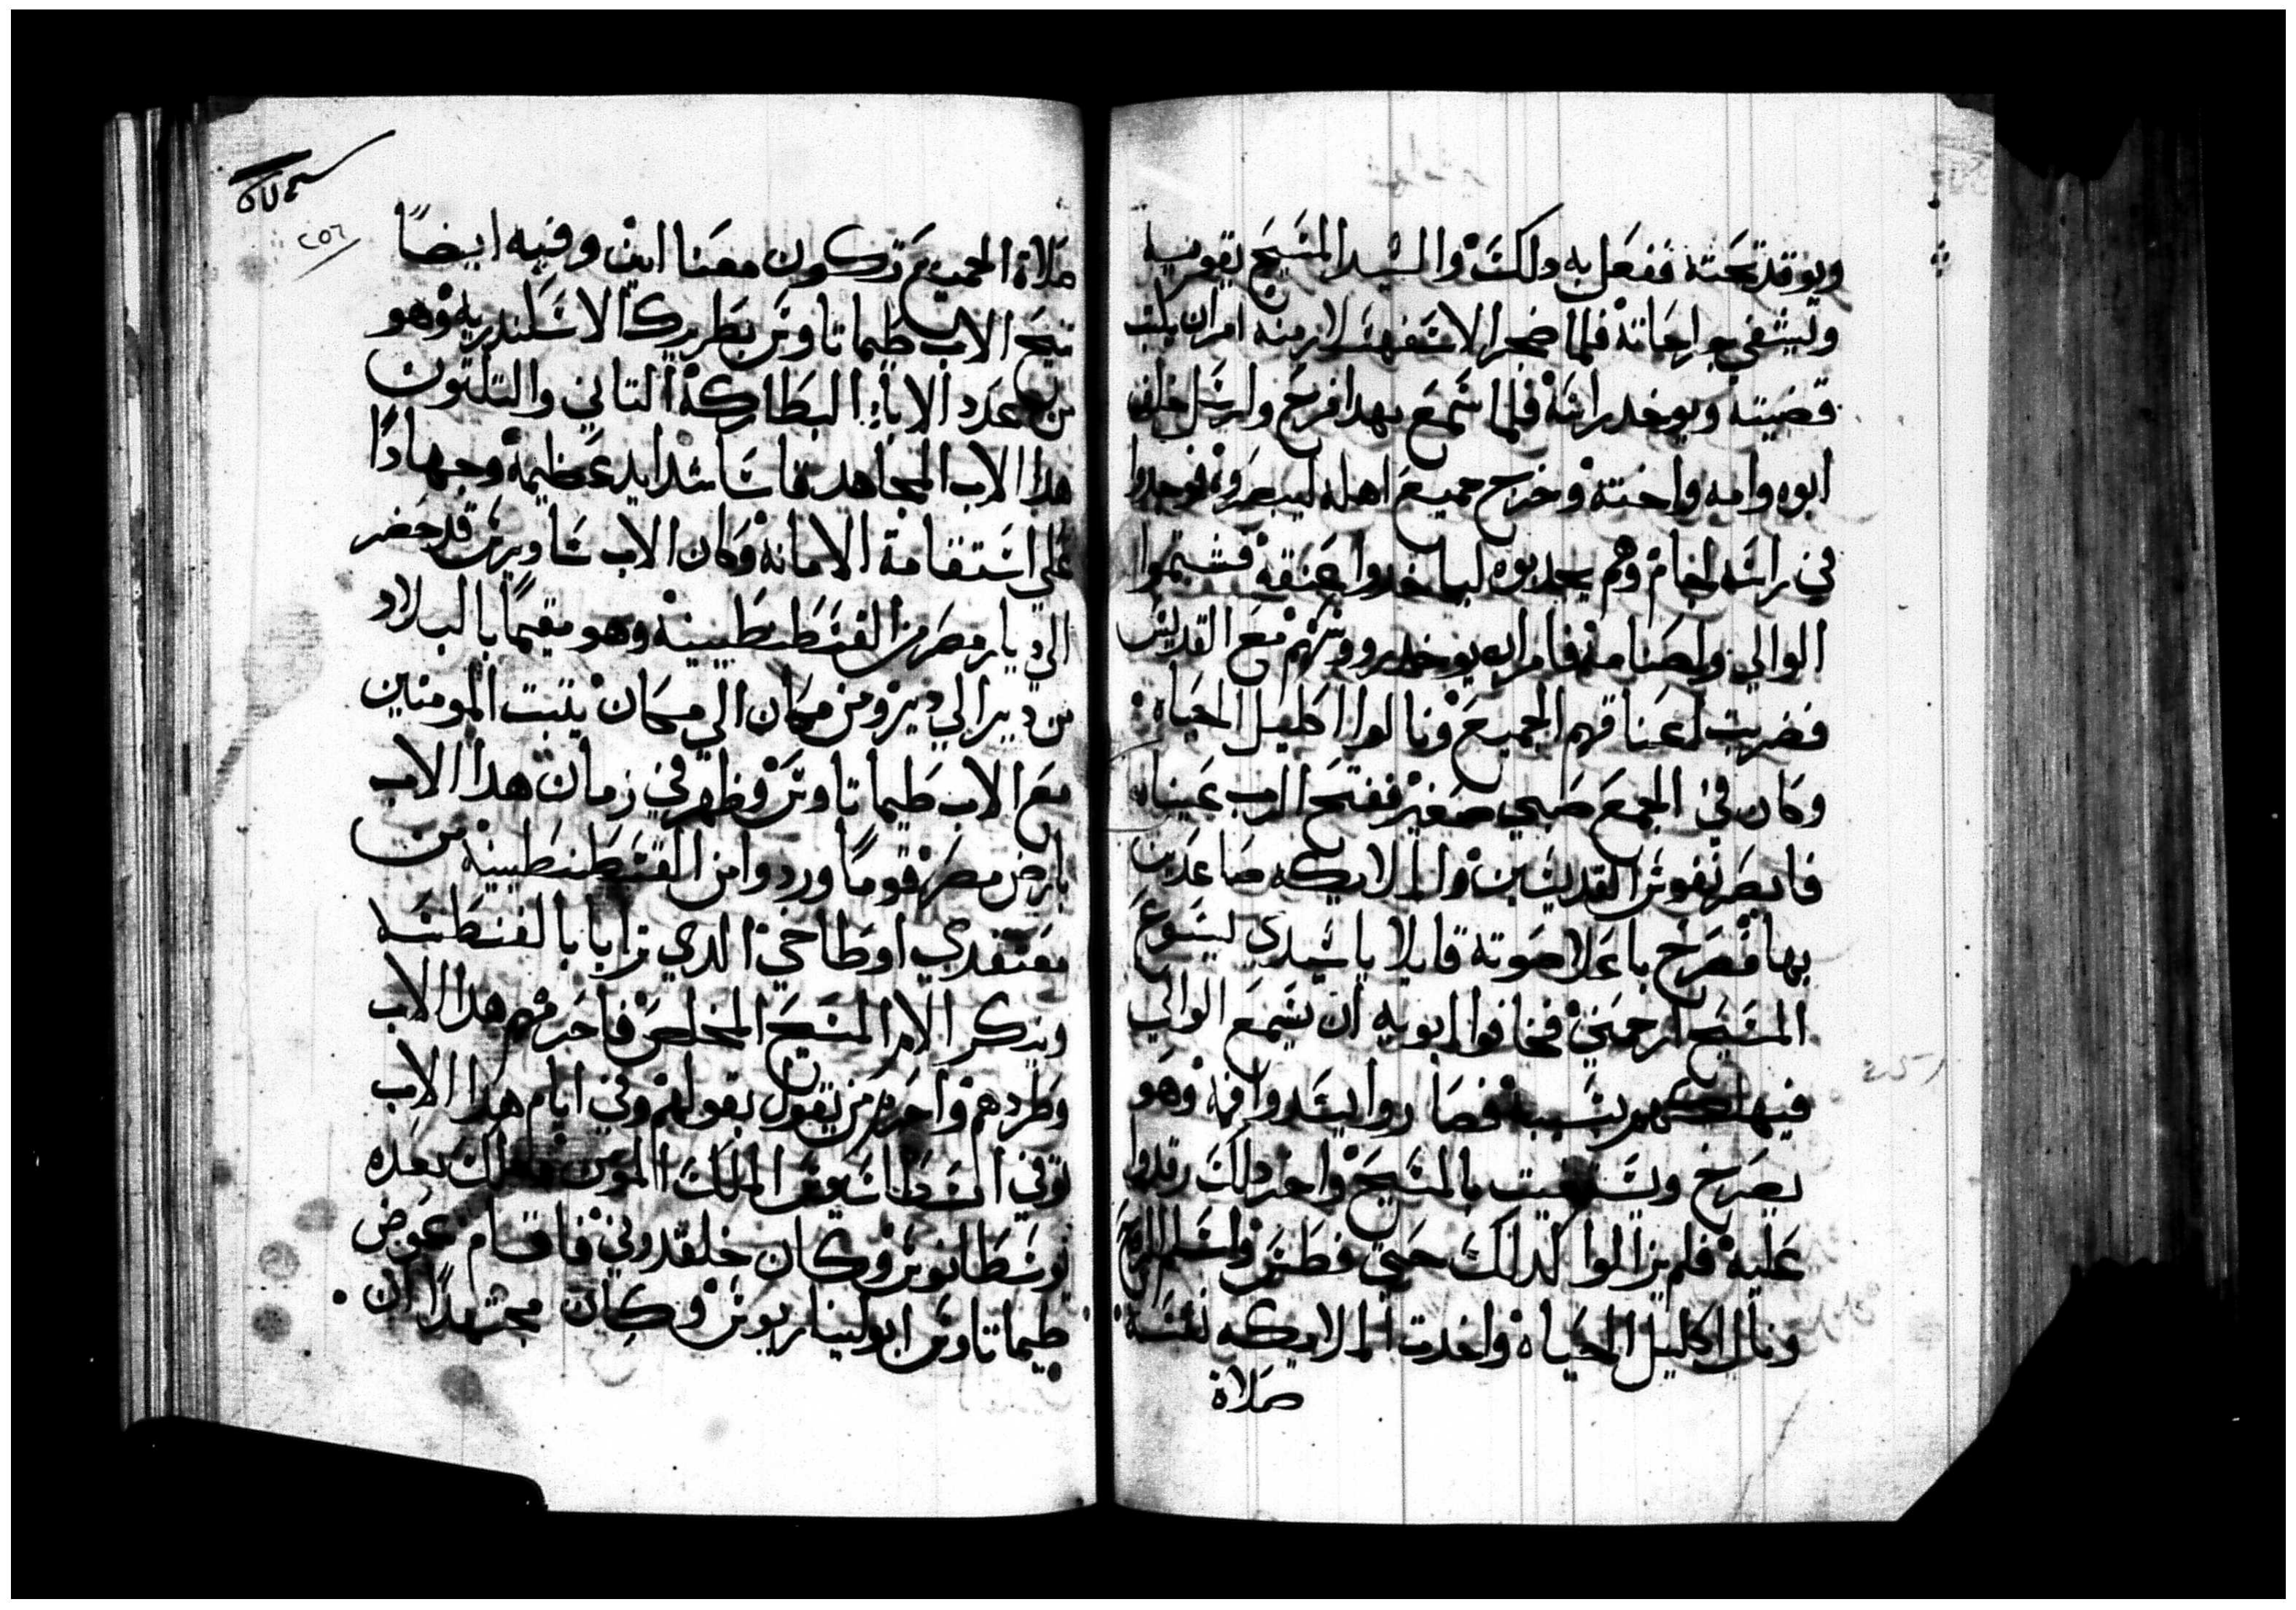 ويوقد تحته ففعل به دلك والسيد المسيح يقويه
ويشفي جراحاته فلما ضجر الاسفهسلار منه امر ان يكتب
قضيته ويوخد راسه فلما سمع بهدا فرح وارسل خلف
ابوه وامه واخته وخرج جميع اهله ليبصروه فوجدوا
في راسه لجام وهم يجدبوه لياخدوا عنقه فشتموا
الوالي واصنامه فامر ان يوخد رووسهم مع القديس
فضربت اعناقهم الجميع ونالوا اكليل الحياه
وكان في الجمع صبي صغير ففتح الرب عيناه
فابصر نفوس القديسين والملايكه صاعدين
بها فصرخ باعلا صوته قايلا ياسيدي يسوع
المسيح ارحمني فخافوا ابويه ان يسمع الوالي
فيهلكهم بسببه فصاروا يسدوا فمه وهو
يصرخ ويستغيت بالمسيح واخر دلك رقدوا
عليه فلم يزالوا كدلك حتي فطس واسلم الروح
ونال اكليل الحياه واخدت الملايكه نفسه
صلاة
٢٥٦
صلاة الجميع تكون معنا امين وفيه ايضاً
تنيح الاب طيماتاوس بطريرك الاسكندريه وهو
من عدد الاباء البطاركة التاني والتلتون
هدا الاب المجاهد قاسا شدايد عظيمة وجهاداً
علي استقامة الامانه وكان الاب ساويرس قد حضر
الي ديار مصر من القسطنطينية وهو مقيماً بالبلاد
من دير الي دير ومن مكان الي مكان يتبت المومنين
مع الاب طيماتاوس وظهر في زمان هدا الاب
بارض مصر قوماً وردوا من القسطنطينيه من
معتقدي اوطاخي الدي تزايا بالفنطسه
وينكر الام المسيح المخلص فاحرمهم هدا الاب
وطردهم واحرم من يقول بقولهم وفي ايام هدا الاب
توفي انسطاسيوس الملك المومن وملك بعده
يوسطانوس وكان خلقدوني فاقام عوض
طيماتاوس ابوليناريوس وكان مجتهداً ان